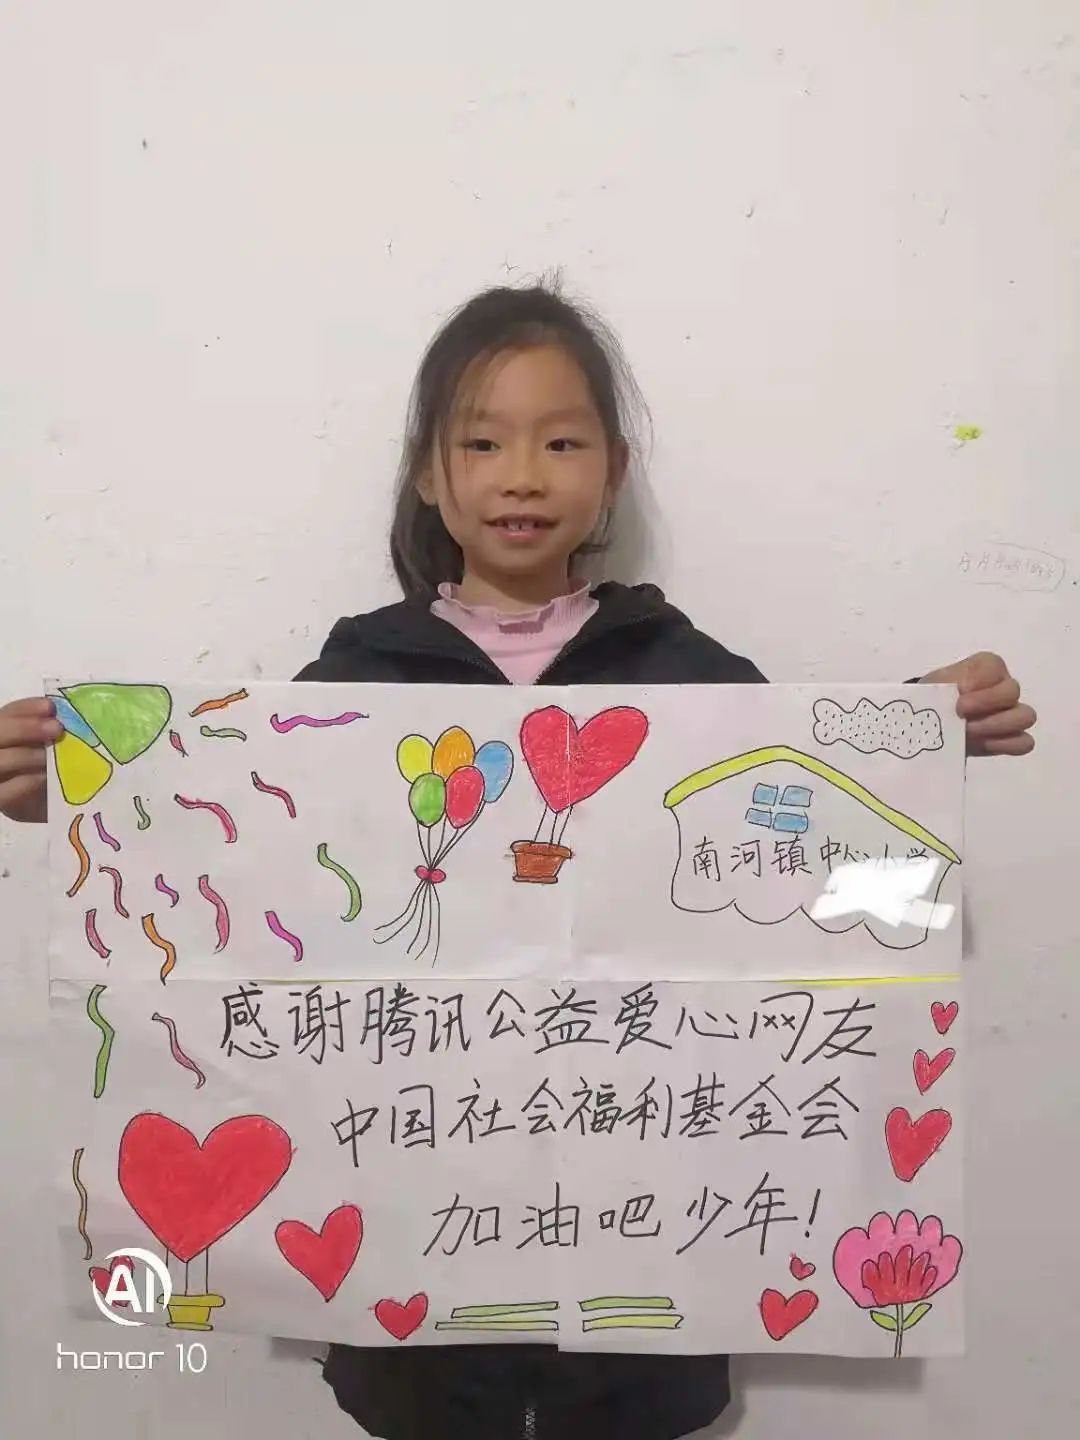 南河镇中心小学
感谢腾讯公益爱心网友
中国社会福利基金会
加油吧少年!
AI
honor 10